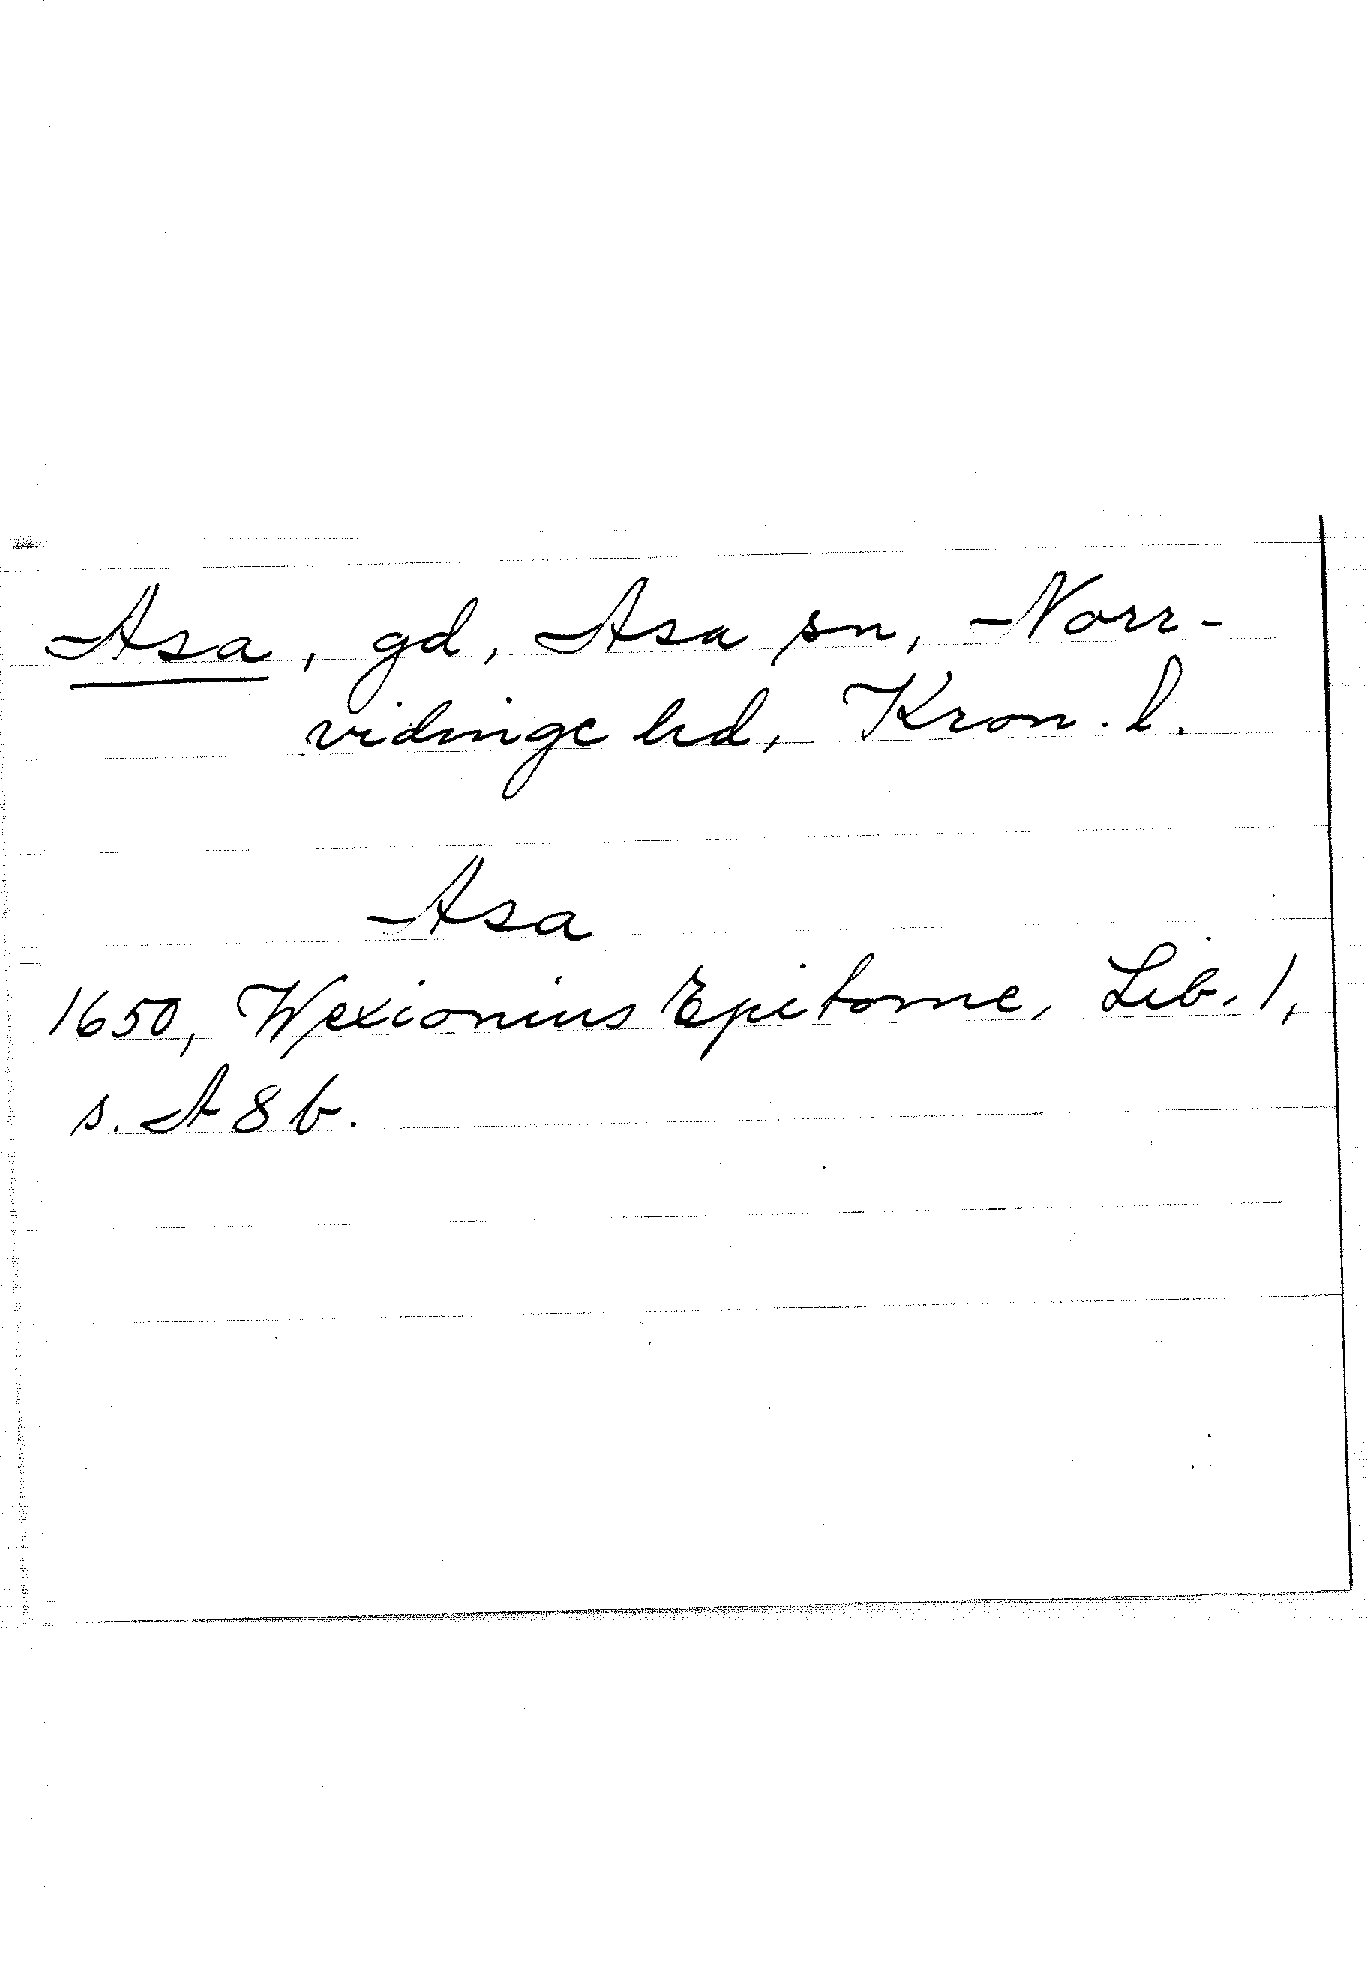 Asa, gd, Asa sn, Norr-
vidinge hd, Kron. l.
Asa
1650, Wexionius Epitome, Lib. 1,
s. A 8 b.